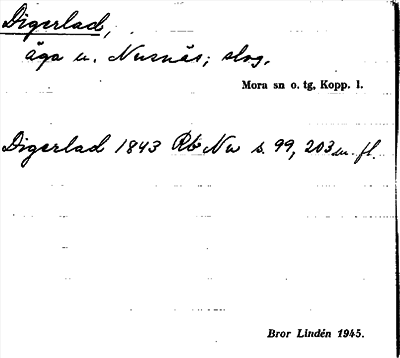 Digerlad,
äga u. Nusnäs; slog.
Mora sn o. tg, Kopp. l.
Digerlad 1843 Rb Nu s. 99, 203 m. fl.
Bror Lindén 1945.